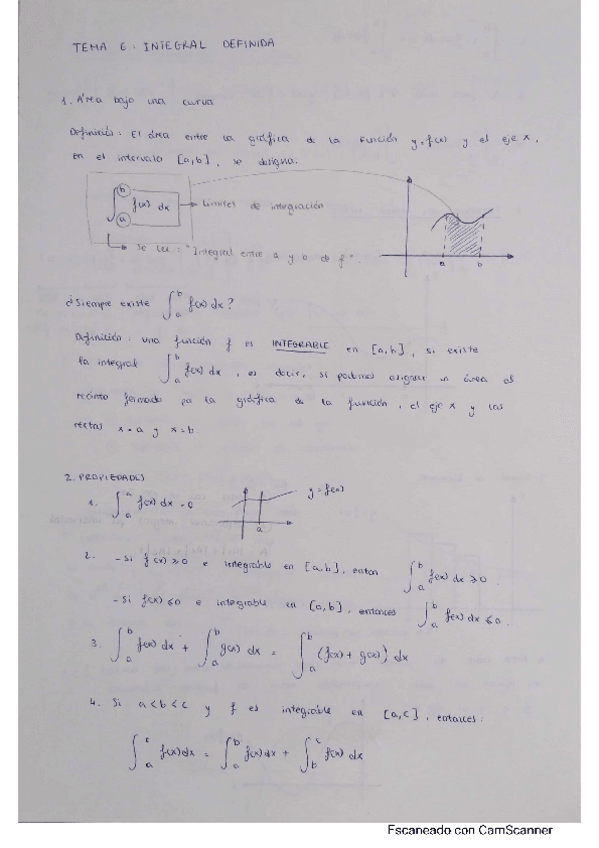 TEMA 6: INTEGRAL DEFINIDA
1. Área bajo una curva
Definición: El área entre la gráfica de la función y=f(x) y el eje x,
en el intervalo [a,b], se designa:
∫ₐᵇ f(x) dx → Límites de integración
→ Se lee: "Integral entre a y b de f".
a b
¿Siempre existe ∫ₐᵇ f(x) dx?
Definición: una función f es INTEGRABLE en [a,b], si existe
la integral ∫ₐᵇ f(x) dx, es decir, si podemos asignar un área al
recinto formado por la gráfica de la función, el eje x y las
rectas x=a y x=b
2. PROPIEDADES
1. ∫ₐᵃ f(x) dx = 0
y=f(x)
a
2. - Si f(x) ≥ 0 e integrable en [a,b], enton ∫ₐᵇ f(x) dx ≥ 0
- Si f(x) ≤ 0 e integrable en [a,b], entonces ∫ₐᵇ f(x) dx ≤ 0.
3. ∫ₐᵇ f(x) dx + ∫ₐᵇ g(x) dx = ∫ₐᵇ (f(x) + g(x)) dx
4. Si a < b < c y f es integrable en [a,c], entonces:
∫ₐᶜ f(x) dx = ∫ₐᵇ f(x) dx + ∫_b^c f(x) dx
Escaneado con CamScanner